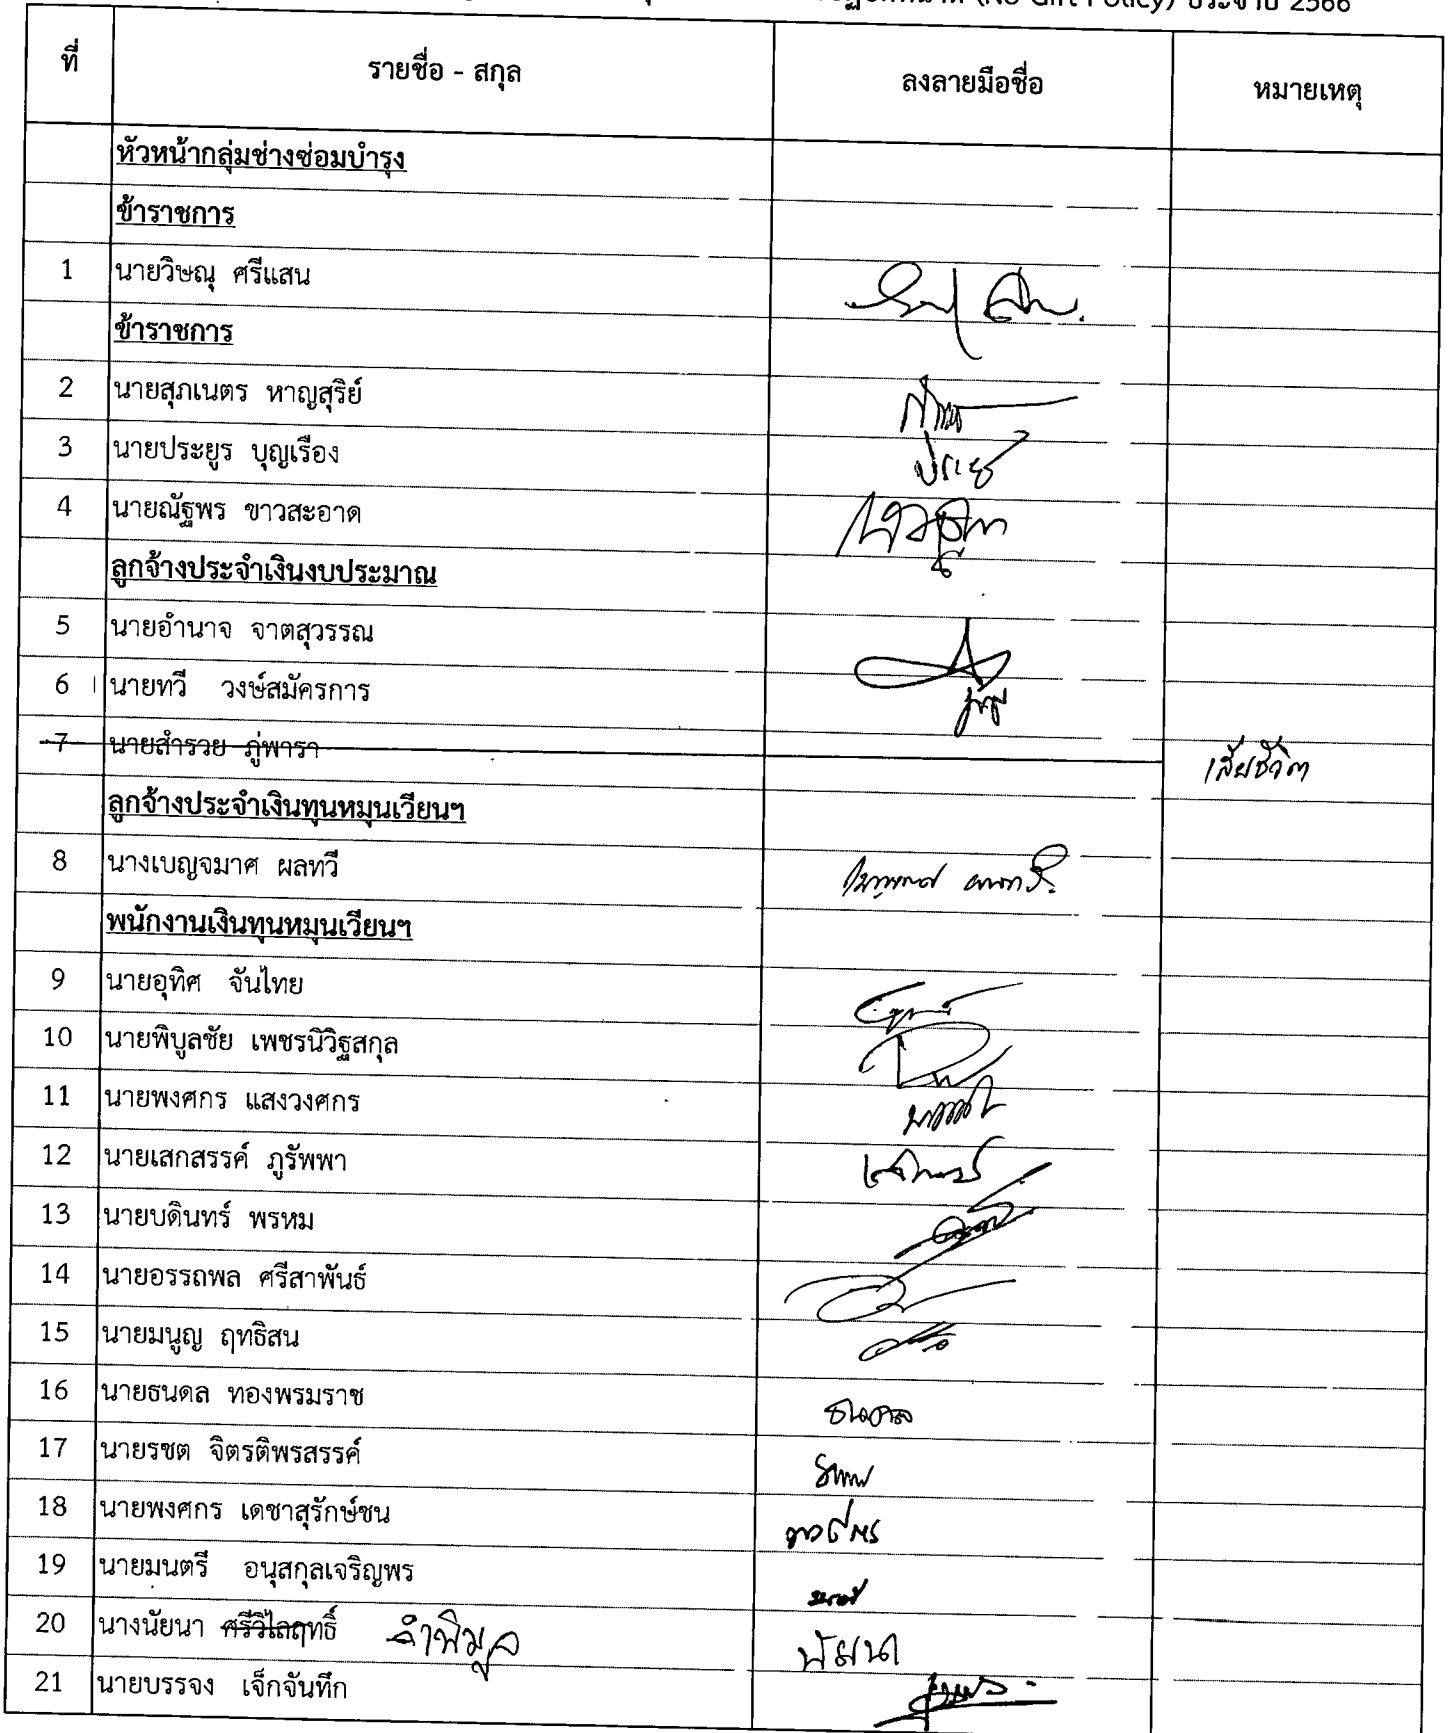 (No Gift Policy) ประจำปี 2566
ที่ รายชื่อ - สกุล ลงลายมือชื่อ หมายเหตุ
หัวหน้ากลุ่มช่างซ่อมบำรุง
ข้าราชการ
1 นายวิษณุ ศรีแสน
ข้าราชการ
2 นายสุภเนตร หาญสุริย์
3 นายประยูร บุญเรือง
4 นายณัฐพร ขาวสะอาด
ลูกจ้างประจำเงินงบประมาณ
5 นายอำนาจ จาตสุวรรณ
6 นายทวี วงษ์สมัครการ
7 นายสำรวย ภู่พารา เสียชีวิต
ลูกจ้างประจำเงินทุนหมุนเวียนฯ
8 นางเบญจมาศ ผลทวี
พนักงานเงินทุนหมุนเวียนฯ
9 นายอุทิศ จันไทย
10 นายพิบูลชัย เพชรนิวิฐสกุล
11 นายพงศกร แสงวงศกร
12 นายเสกสรรค์ ภูรัพพา
13 นายบดินทร์ พรหม
14 นายอรรถพล ศรีสาพันธ์
15 นายมนูญ ฤทธิสน
16 นายธนดล ทองพรมราช ธนดล
17 นายรชต จิตรติพรสรรค์
18 นายพงศกร เดชาสุรักษ์ชน
19 นายมนตรี อนุสกุลเจริญพร มนตรี
20 นางนัยนา ศรีวิไลฤทธิ์ คำพิมูล นัยนา
21 นายบรรจง เจ็กจันทึก